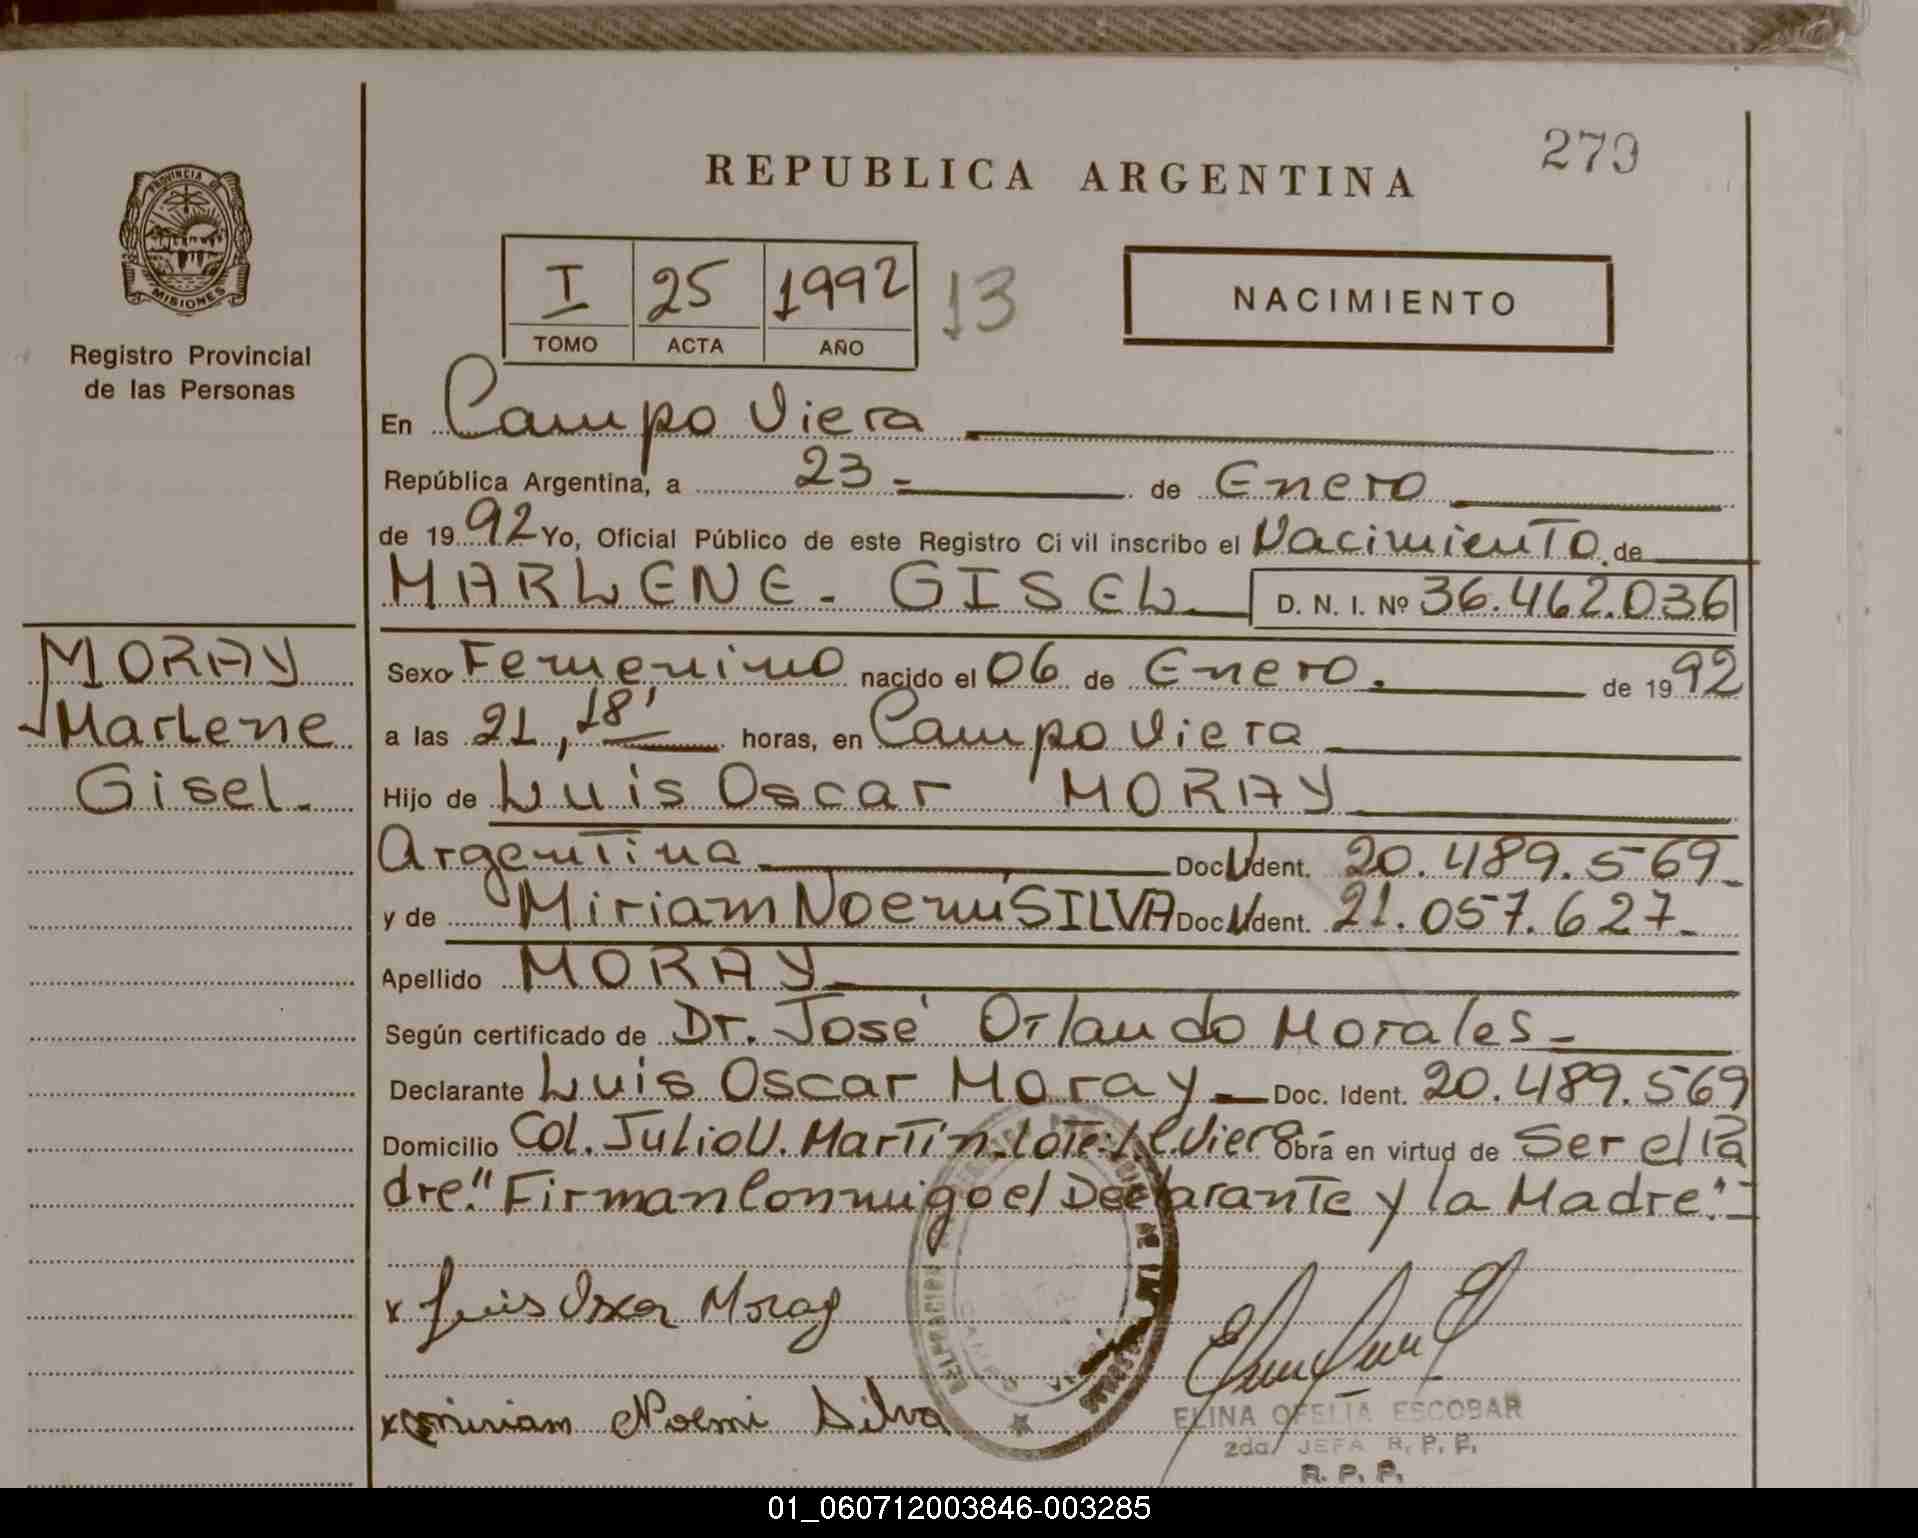 279
REPUBLICA ARGENTINA
PROVINCIA DE
MISIONES
Registro Provincial
de las Personas
I 25 1992 13
TOMO ACTA AÑO
NACIMIENTO
En Campo Viera
República Argentina, a 23 - de Enero
de 1992 Yo, Oficial Público de este Registro Ci vil inscribo el Nacimiento de
MARLENE - GISEL D. N. I. Nº 36.462.036
MORAY
Marlene
Gisel.
Sexo Femenino nacido el 06 de Enero. de 1992
a las 21,18' horas, en Campo Viera
Hijo de Luis Oscar MORAY
Argentina Doc. Ident. 20.489.569-
y de Miriam Noemi SILVA Doc. Ident. 21.057.627-
Apellido MORAY
Según certificado de Dr. José Orlando Morales-
Declarante Luis Oscar Moray - Doc. Ident. 20.489.569
Domicilio Col. Julio U. Martin Lote: Viera Obra en virtud de Ser el Pa
dre." Firman Conmigo el Declarante y la Madre":-
x Luis Oscar Moray
x miriam Noemi Silva
ELINA OFELIA ESCOBAR
2da JEFA R. P. P.
R. P. P.
01_060712003846-003285